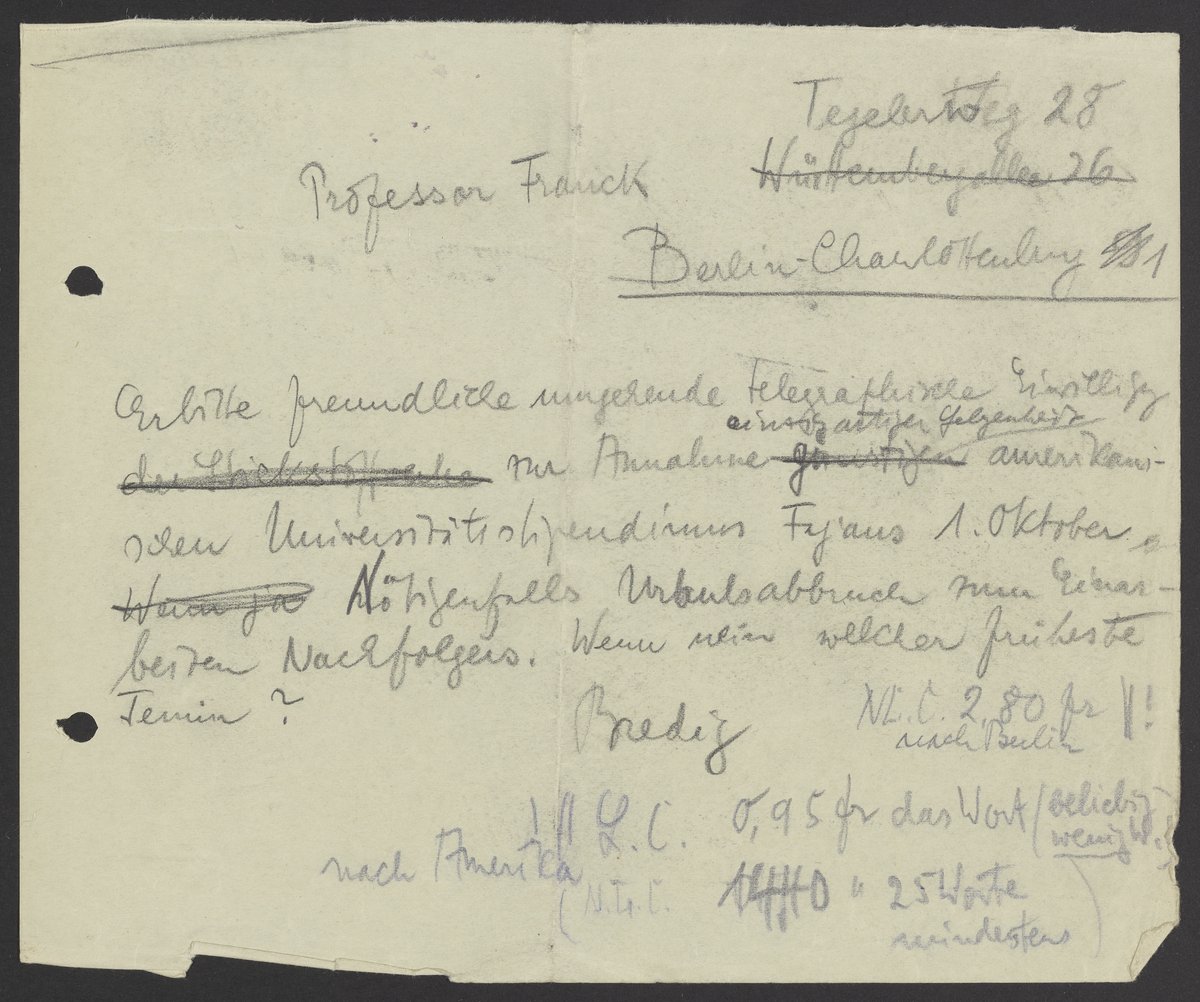 Tegelerweg 28
Professor Franck
Württembergallee 26
Berlin-Charlottenburg 1
Erbitte freundliche umgehende telegraphische Einwilligg
einzigartiger Gelegenheit
zur Annahme günstigen amerikani-
schen Universitätsstipendiums Fajans 1. Oktober
Wenn ja Nötigenfalls Urlaubsabbruch zum Einar-
beiten Nachfolgers. Wenn nein welcher früheste
Temin ?
Bredig
NL.C. 2,80 fr !
nach Berlin
! L.C. 0,95 fr das Wort (beliebig
wenig W.)
nach Amerika
(N.L.C. " 25 Worte
mindestens)